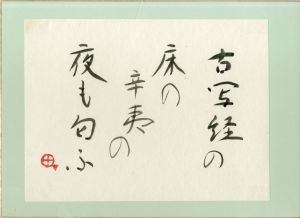 古写経の
床の
辛夷の
夜も匂ふ